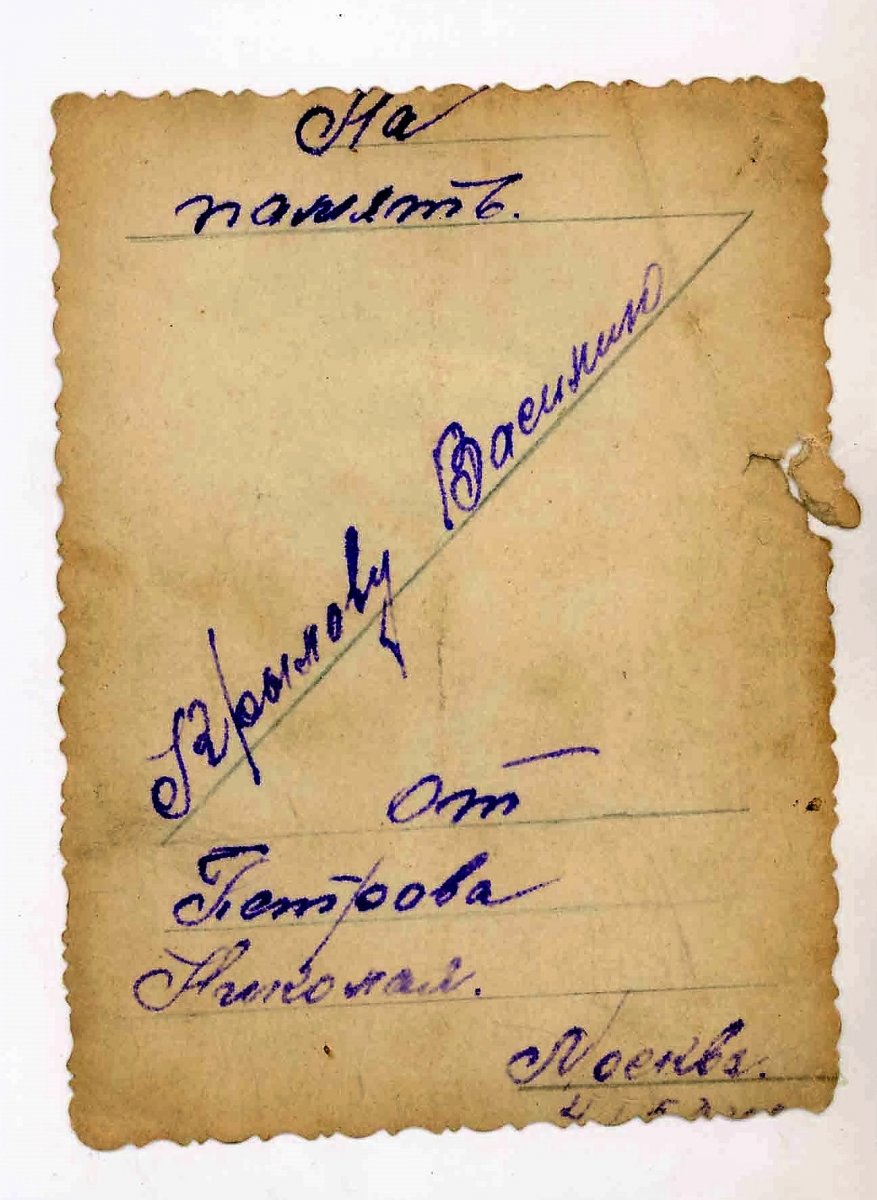 На
память.
Крымову Василию
от
Петрова
Николая.
Москва.